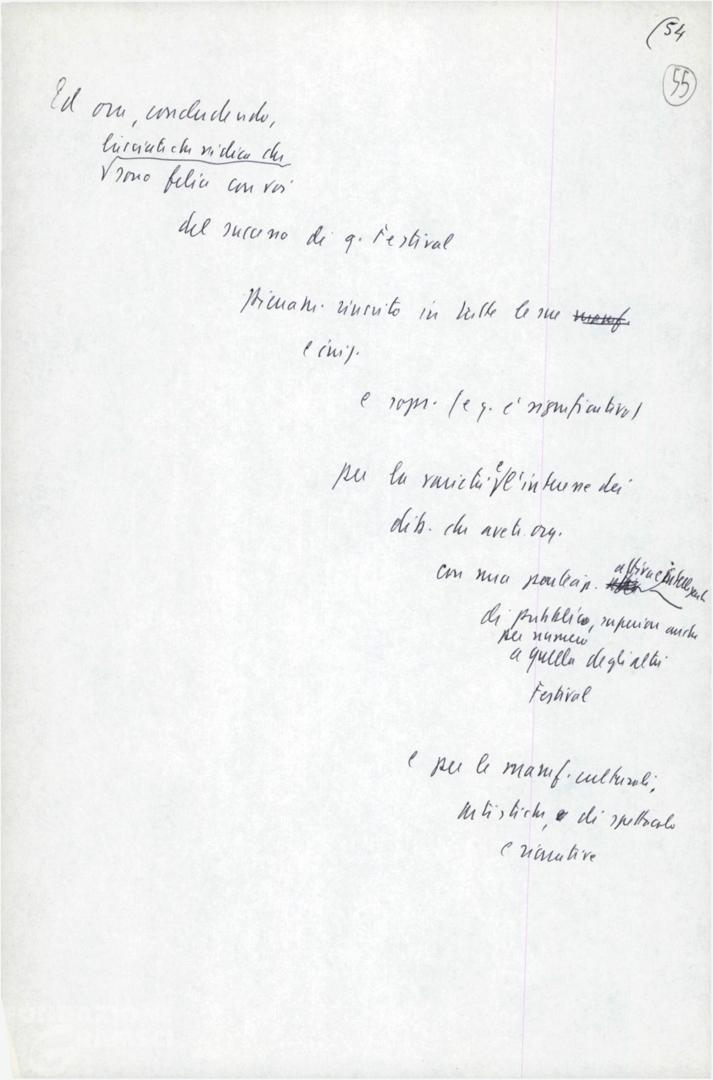 (54
55
Ed ora, concludendo,
lasciate che vi dica che
sono felice con voi
del successo di q. Festival
pienam. riuscito in tutte le sue manif.
e iniz.
e sopr. (e q. è significativo)
per la varietà e l'interesse dei
dib. che avete org.
con una partecip. attiva e intelligente
di pubblico, superiore anche
per numero
a quella degli altri
Festival
e per le manif. culturali,
artistiche, e di spettacolo
e ricreative